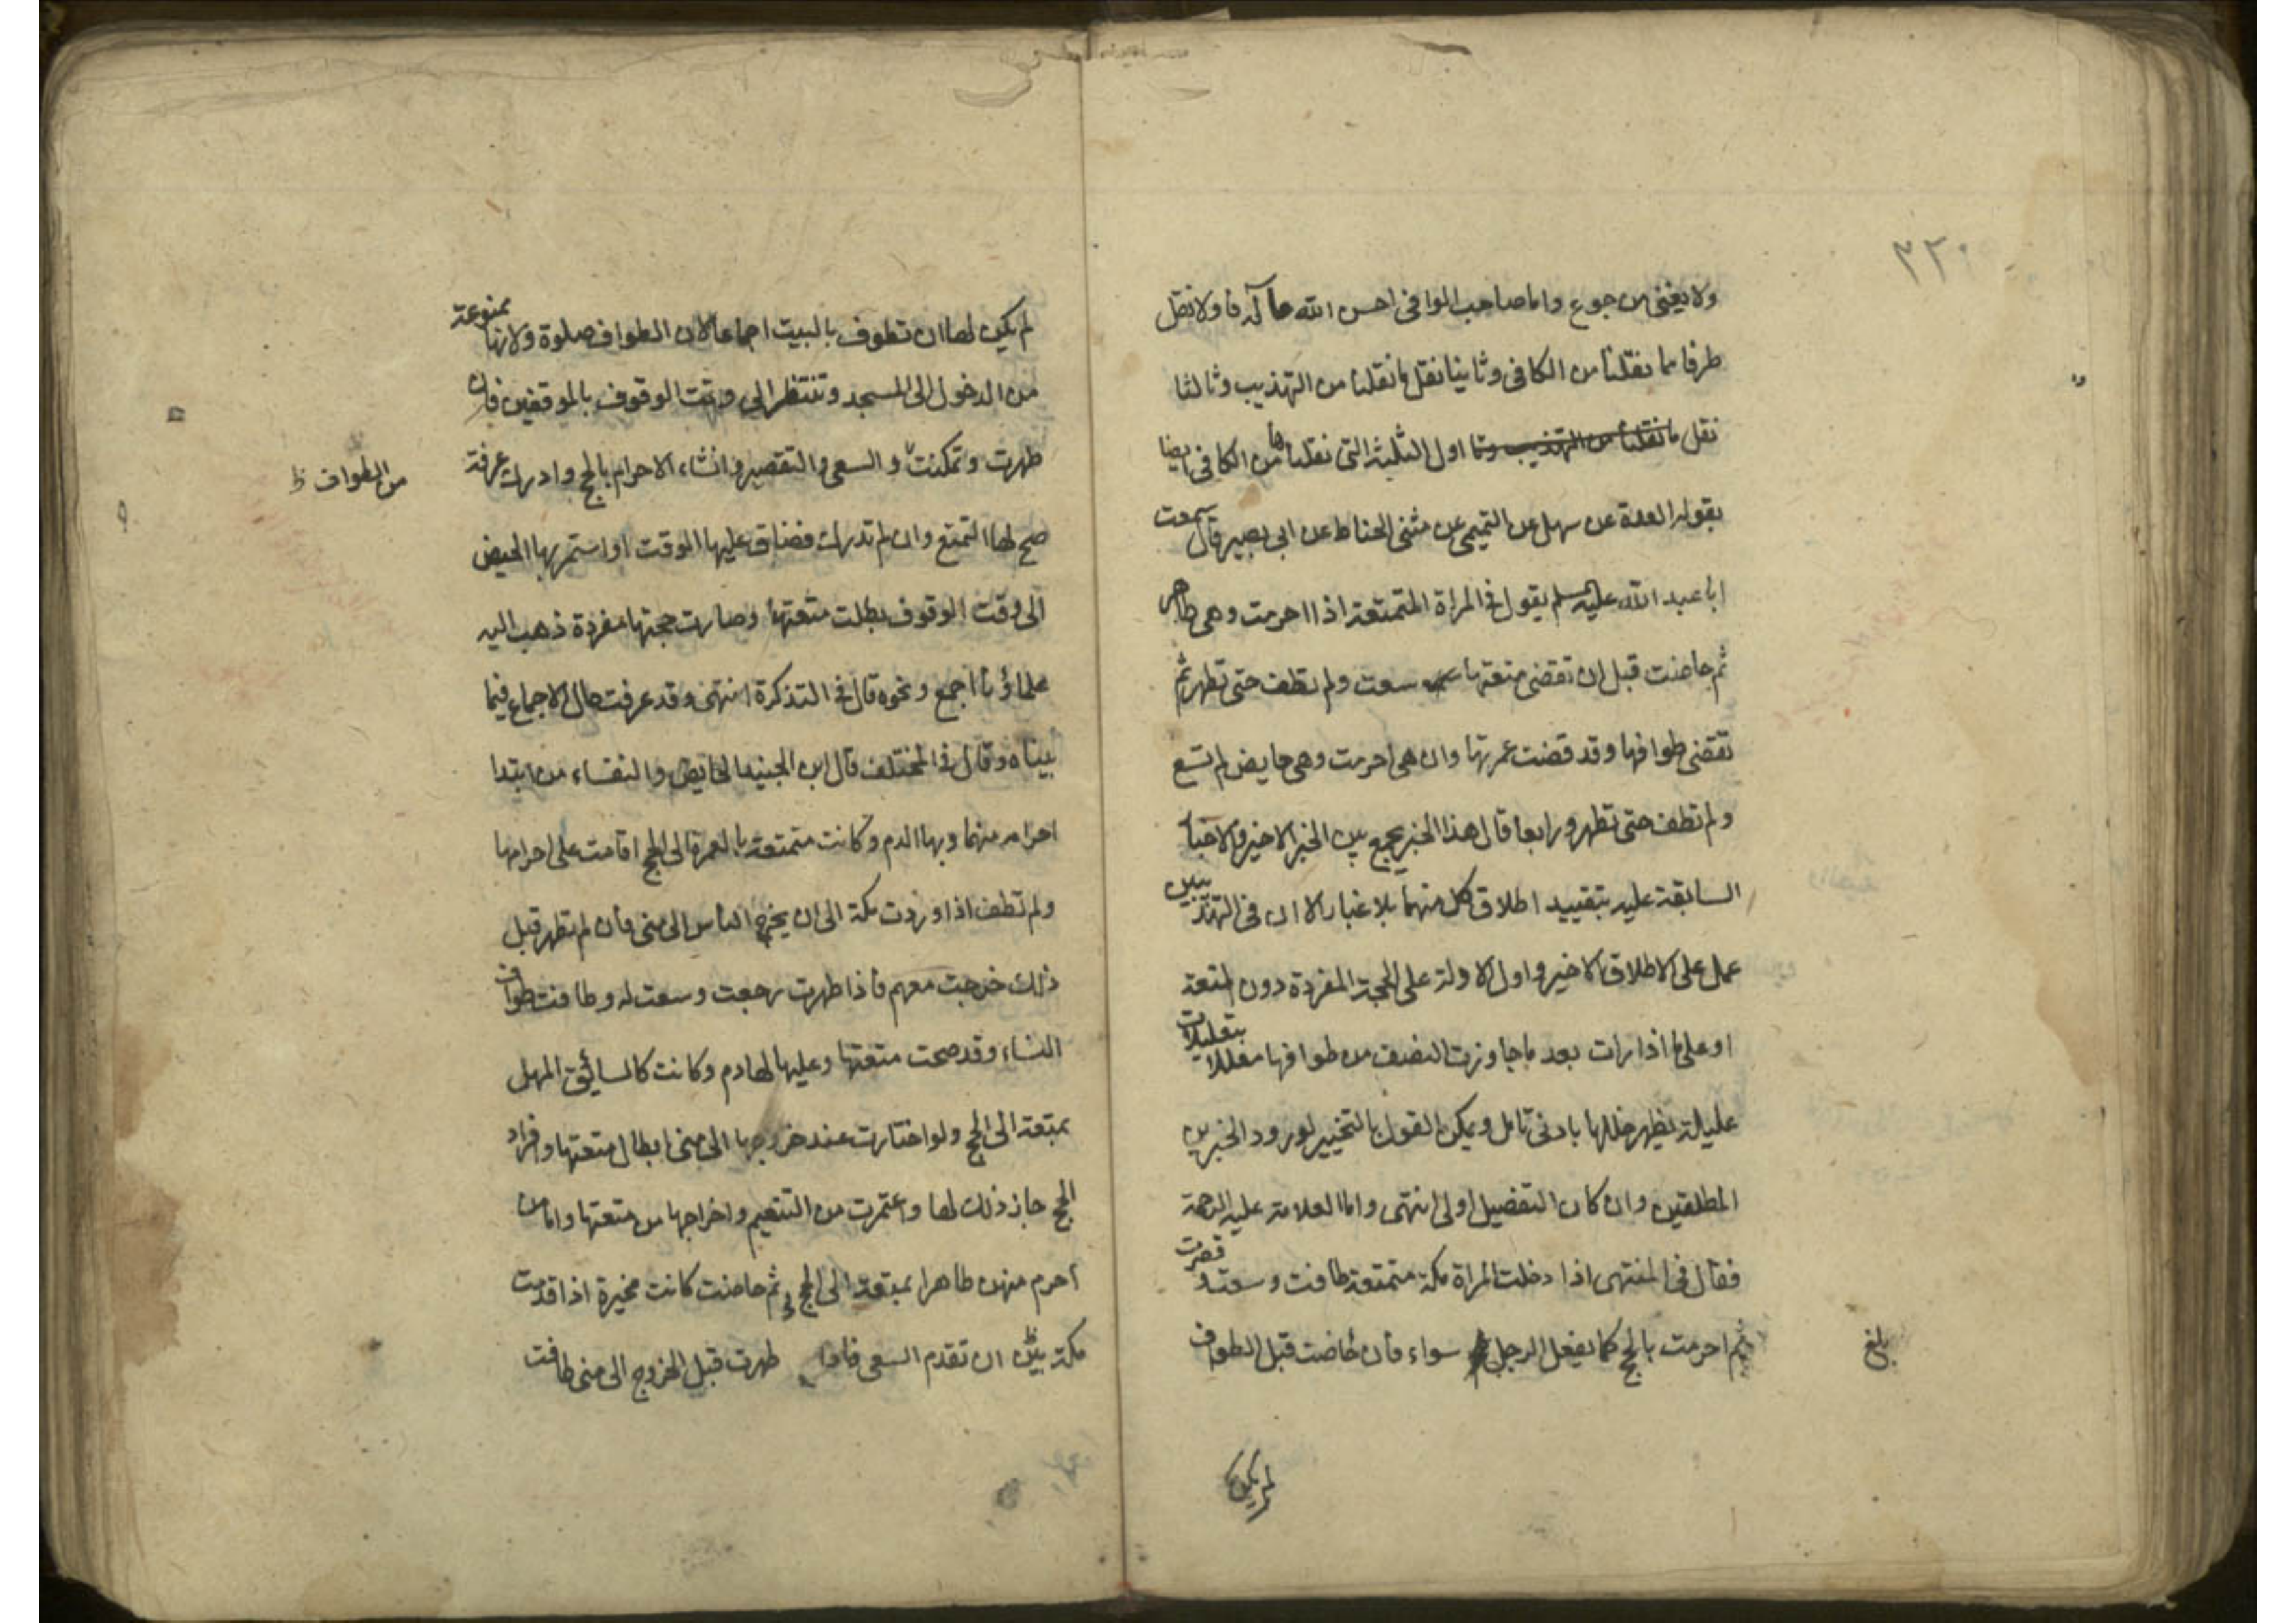 ٣٢٠
ولا يغنى من جوع واما صاحب الوافى احسن الله مآله فاولا نقل
طرفا مما نقلنا من الكافى وثانيا نقل ما نقلنا من التهذيب وثالثا
نقل ما نقلنا من التهذيب وثا اول الثلثة التى نقلناها من الكافى ايضا
بقوله العدة عن سهل عن التميمى عن مثنى الحناط عن ابى بصير قال سمعت
ابا عبد الله عليه السلم يقول فى المراة المتمتعة اذا احرمت وهى طاهر
ثم حاضت قبل ان تقضى متعتها سعت ولم تطف حتى تطهر ثم
تقضى طوافها وقد قضت عمرتها وان هى احرمت وهى حايض لم تسع
ولم تطف حتى تطهر ورابعا قال هذا الخبر يجمع بين الخبر الاخير والاخبار
السابقة عليه بتقييد اطلاق كل منهما بلا غبار الا ان فى التهذيبين
عمل على الاطلاق الاخير واول الاولة على الحجة المفردة دون المتعة
او على ما اذا رات بعد ما جاوزت النصف من طوافها معللا بتعليلات
عليلة يظهر خللها بادنى تامل ويمكن القول بالتخيير لورود الخبرين
المطلقين وان كان التفضيل اولى انتهى واما العلامة عليه الرحمة
فقال فى المنتهى اذا دخلت المراة مكة متمتعة طافت وسعت قصرت
ثم احرمت بالحج كما يفعل الرجل سواء فان حاضت قبل الطواف
بلغ
لم يكن
لم يكن لها ان تطوف بالبيت اجماعا لان الطواف صلوة ولانها ممنوعة
من الدخول الى المسجد وتنتظر الى وقت الوقوف بالموقفين فان
طهرت وتمكنت و السعى والتقصير وانشاء الاحرام بالحج وادراك عرفة
من الطواف ظ
صح لها التمتع وان لم تدرك فضاق عليها الوقت او استمر بها الحيض
الى وقت الوقوف بطلت متعتها وصارت حجتها مفردة ذهب اليه
علماؤنا اجمع ونحوه قال فى التذكرة انتهى وقد عرفت حال الاجماع فيما
بيناه وقال فى المختلف قال ابن الجنيد الحايض والنفساء من ابتدا
احرامه منهما وبها الدم وكانت متمتعة بالعمرة الى الحج اقامت على احرامها
ولم تطف اذا وردت مكة الى ان يخرج الناس الى منى فان لم تطهر قبل
ذلك خرجت معهم فاذا طهرت رجعت وسعت له وطافت طواف
النساء وقد صحت متعتها وعليها لهادم وكانت كالسائق المهل
بمتعة الى الحج ولو اختارت عند خروجها الى منى ابطال متعتها وافراد
الحج جاز ذلك لها واعتمرت من التنعيم واخراجها من متعتها واما من
احرم منهن طاهرا بمتعة الى الحج ثم حاضت كانت مخيرة اذا قدمت
مكة بين ان تقدم السعى فاذا طهرت قبل الخروج الى منى طافت